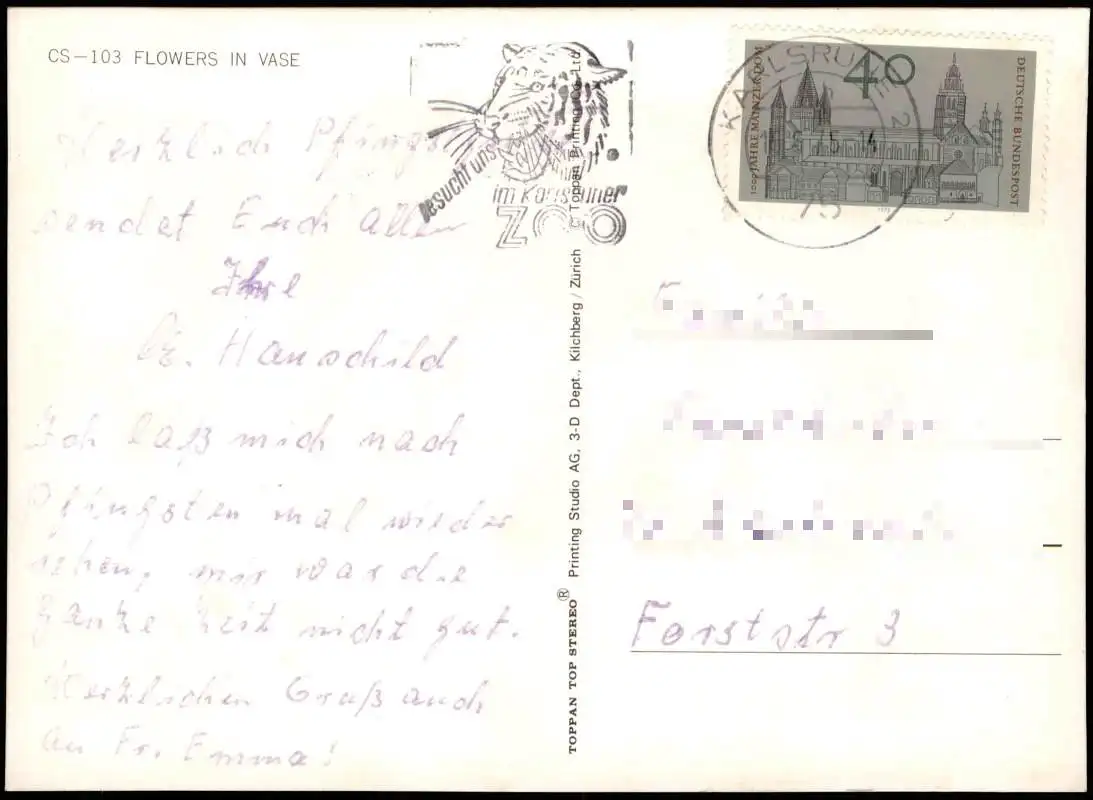 CS–103 FLOWERS IN VASE
Herzlich Pfings
sendet Euch allen
Ihre
Hanschild
Ich laß mich nach
Pfingsten mal wieder
sehen, mir war die
ganze Zeit nicht gut.
Herzlichen Gruß auch
an Fr. Emma!
TOPPAN TOP STEREO® Printing Studio AG, 3-D Dept., Kilchberg / Zürich © Toppan Printing Co. Ltd.
Besucht uns
im Karlsruher
ZOO
KARLSRUHE 2
75
40
1000 JAHRE MAINZER DOM
DEUTSCHE BUNDESPOST
Forststr 3